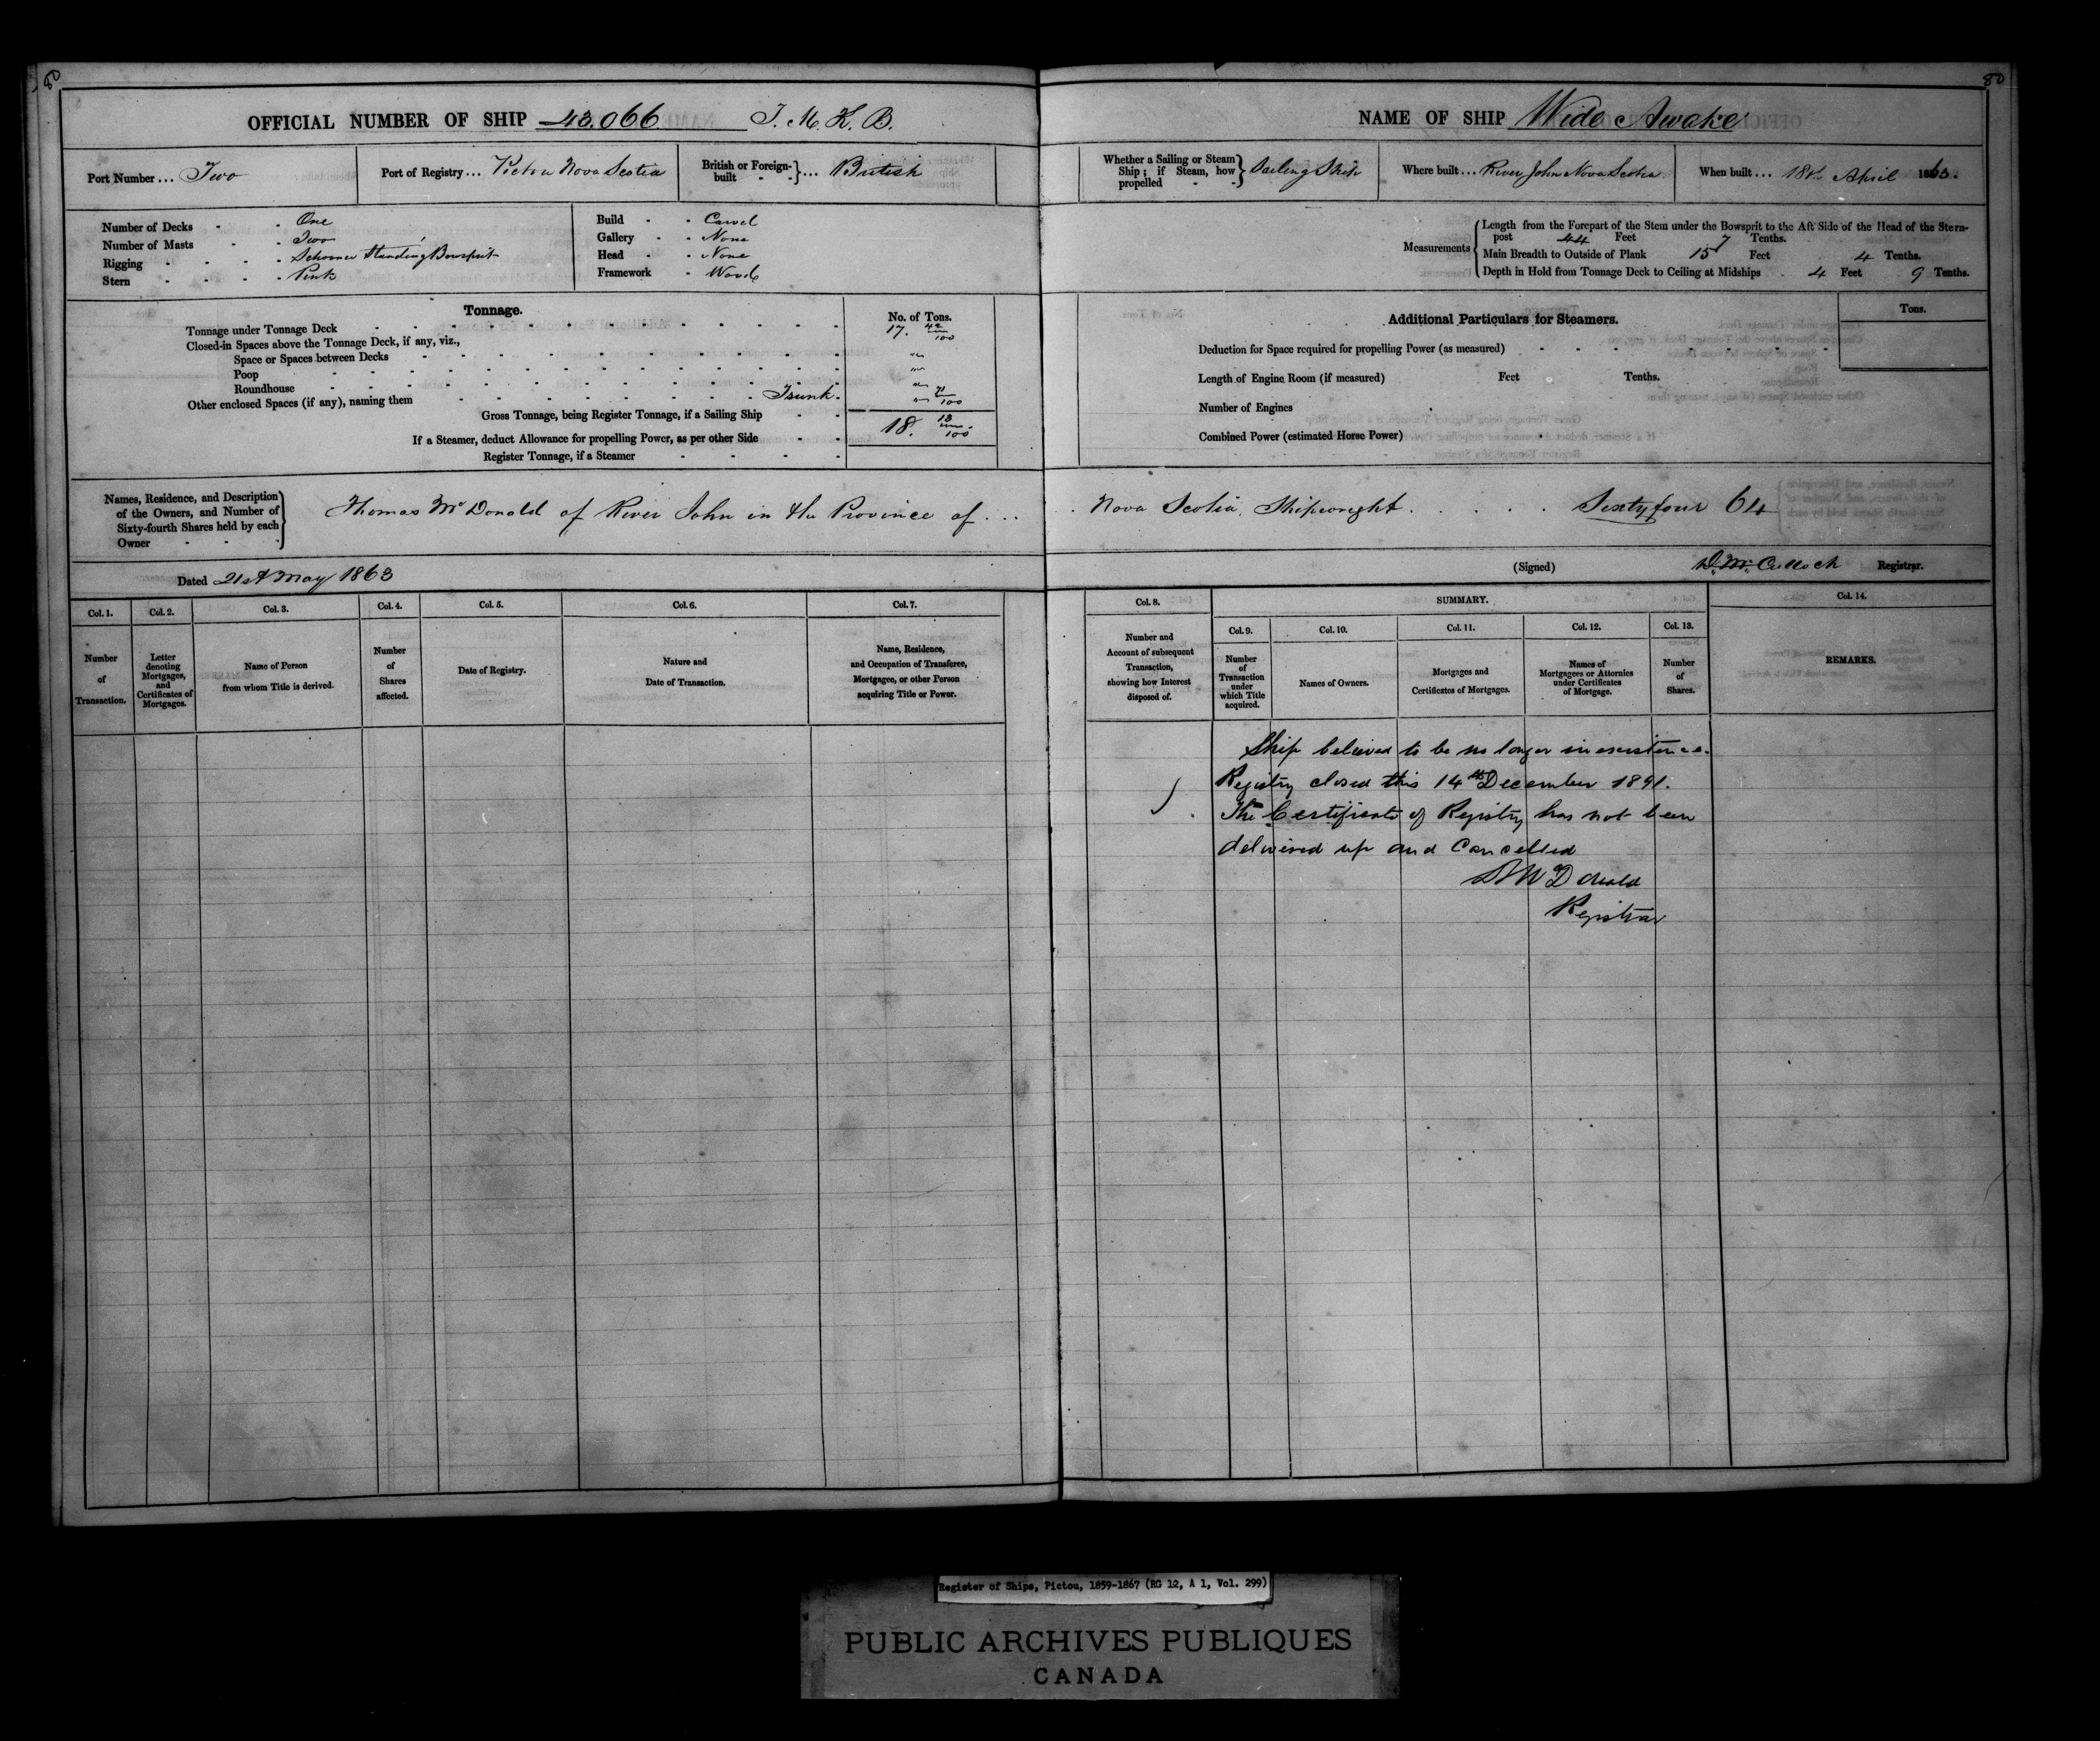 80
OFFICIAL NUMBER OF SHIP 43.066 T. M. K. B.
Port Number ... Two
Port of Registry ... Pictou Nova Scotia
British or Foreign-built - - } ... British
Number of Decks - - One
Number of Masts - - Two
Rigging - - - - Schooner Standing Bowsprit
Stern - - - - Pink
Build - - Carvel
Gallery - - None
Head - - None
Framework - Wood
Tonnage.
No. of Tons.
Tonnage under Tonnage Deck 17. 42/100
Closed-in Spaces above the Tonnage Deck, if any, viz.,
Space or Spaces between Decks "
Poop "
Roundhouse "
Other enclosed Spaces (if any), naming them Trunk. " 71/100
Gross Tonnage, being Register Tonnage, if a Sailing Ship 18. 13/100
If a Steamer, deduct Allowance for propelling Power, as per other Side
Register Tonnage, if a Steamer
Names, Residence, and Description
of the Owners, and Number of
Sixty-fourth Shares held by each
Owner
Thomas McDonald of River John in the Province of ...
Dated 21st May 1863
Col. 1. Col. 2. Col. 3. Col. 4. Col. 5. Col. 6. Col. 7.
Number of Transaction.
Letter denoting Mortgages, and Certificates of Mortgages.
Name of Person from whom Title is derived.
Number of Shares affected.
Date of Registry.
Nature and Date of Transaction.
Name, Residence, and Occupation of Transferee, Mortgagee, or other Person acquiring Title or Power.
80
NAME OF SHIP Wide Awake
Whether a Sailing or Steam Ship; if Steam, how propelled - - } Sailing Ship
Where built ... River John Nova Scotia
When built ... 18th April 1863.
Measurements
Length from the Forepart of the Stem under the Bowsprit to the Aft Side of the Head of the Stern-
post 44 Feet 7 Tenths.
Main Breadth to Outside of Plank 15 Feet 4 Tenths.
Depth in Hold from Tonnage Deck to Ceiling at Midships 4 Feet 9 Tenths.
Additional Particulars for Steamers.
Tons.
Deduction for Space required for propelling Power (as measured)
Length of Engine Room (if measured) Feet Tenths.
Number of Engines
Combined Power (estimated Horse Power)
Nova Scotia, Shipwright . . . . . Sixty four 64
(Signed) D. McCulloch Registrar.
Col. 8.
SUMMARY.
Col. 14.
Col. 9. Col. 10. Col. 11. Col. 12. Col. 13.
Number and Account of subsequent Transaction, showing how Interest disposed of.
Number of Transaction under which Title acquired.
Names of Owners.
Mortgages and Certificates of Mortgages.
Names of Mortgagees or Attornies under Certificates of Mortgage.
Number of Shares.
REMARKS.
Ship believed to be no longer in existence.
Registry closed this 14th December 1891.
The Certificate of Registry has not been
delivered up and Cancelled
McDonald
Registrar
Register of Ships, Pictou, 1859-1867 (RG 12, A 1, Vol. 299)
PUBLIC ARCHIVES PUBLIQUES
CANADA